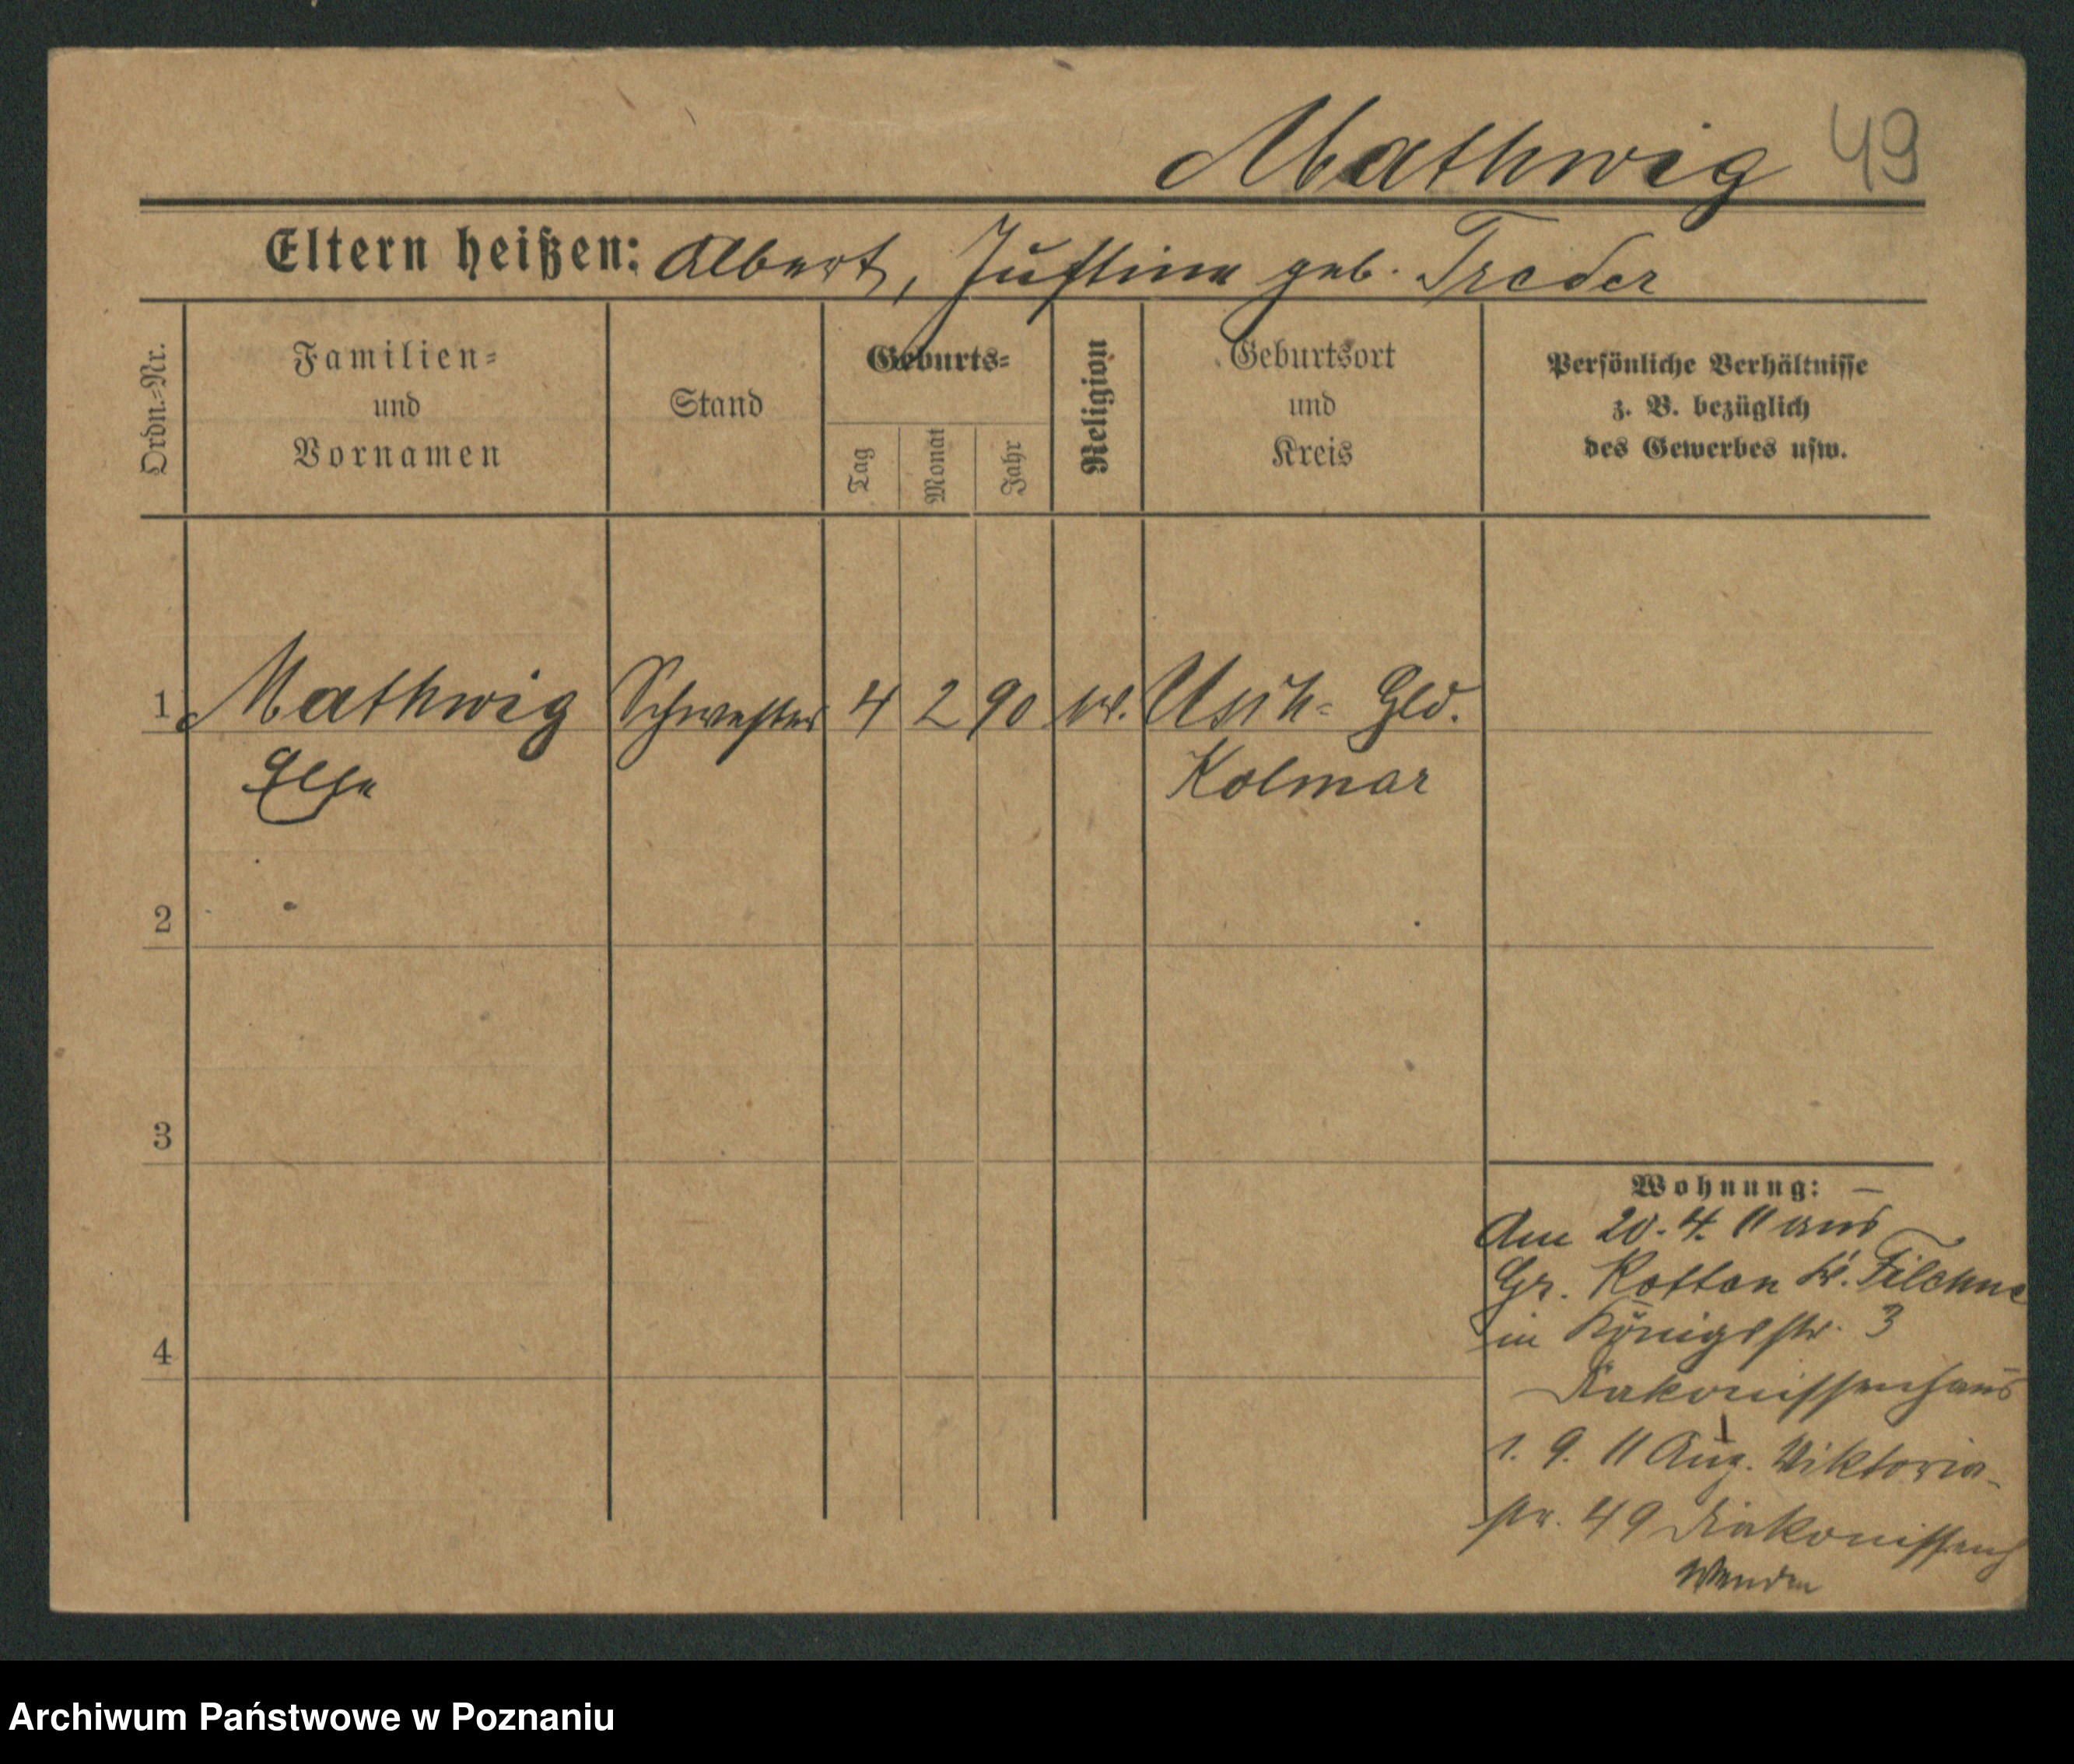 Mathwig 49
Eltern heißen: Albert, Justine geb. Treder
Ordn.-Nr.
Familien-
und
Vornamen
Stand
Geburts-
Tag
Monat
Jahr
Religion
Geburtsort
und
Kreis
Persönliche Verhältnisse
z. B. bezüglich
des Gewerbes usw.
1 Mathwig Schwester 4 2 90 ev. Usch-
Else Kolmar
2
3
4
Wohnung:
Am 20. 4. 11 aus
Gr. Kotten Kr. Filehne
in Königstr. 3
Diakonissenhaus
1. 9. 11 Aug. Viktoria-
str. 49 Diakonissenh
Wenden
Archiwum Państwowe w Poznaniu